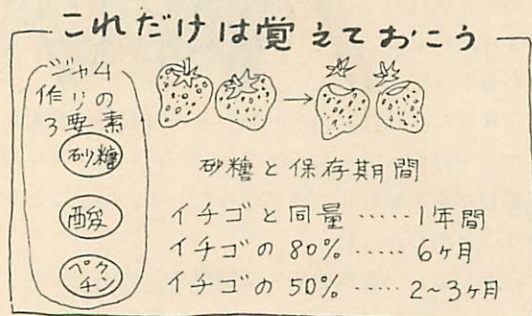 これだけは覚えておこう
ジャム
作りの
3要素
砂糖
酸
ペク
チン
砂糖と保存期間
イチゴと同量……1年間
イチゴの80%……6ヶ月
イチゴの50%……2~3ヶ月